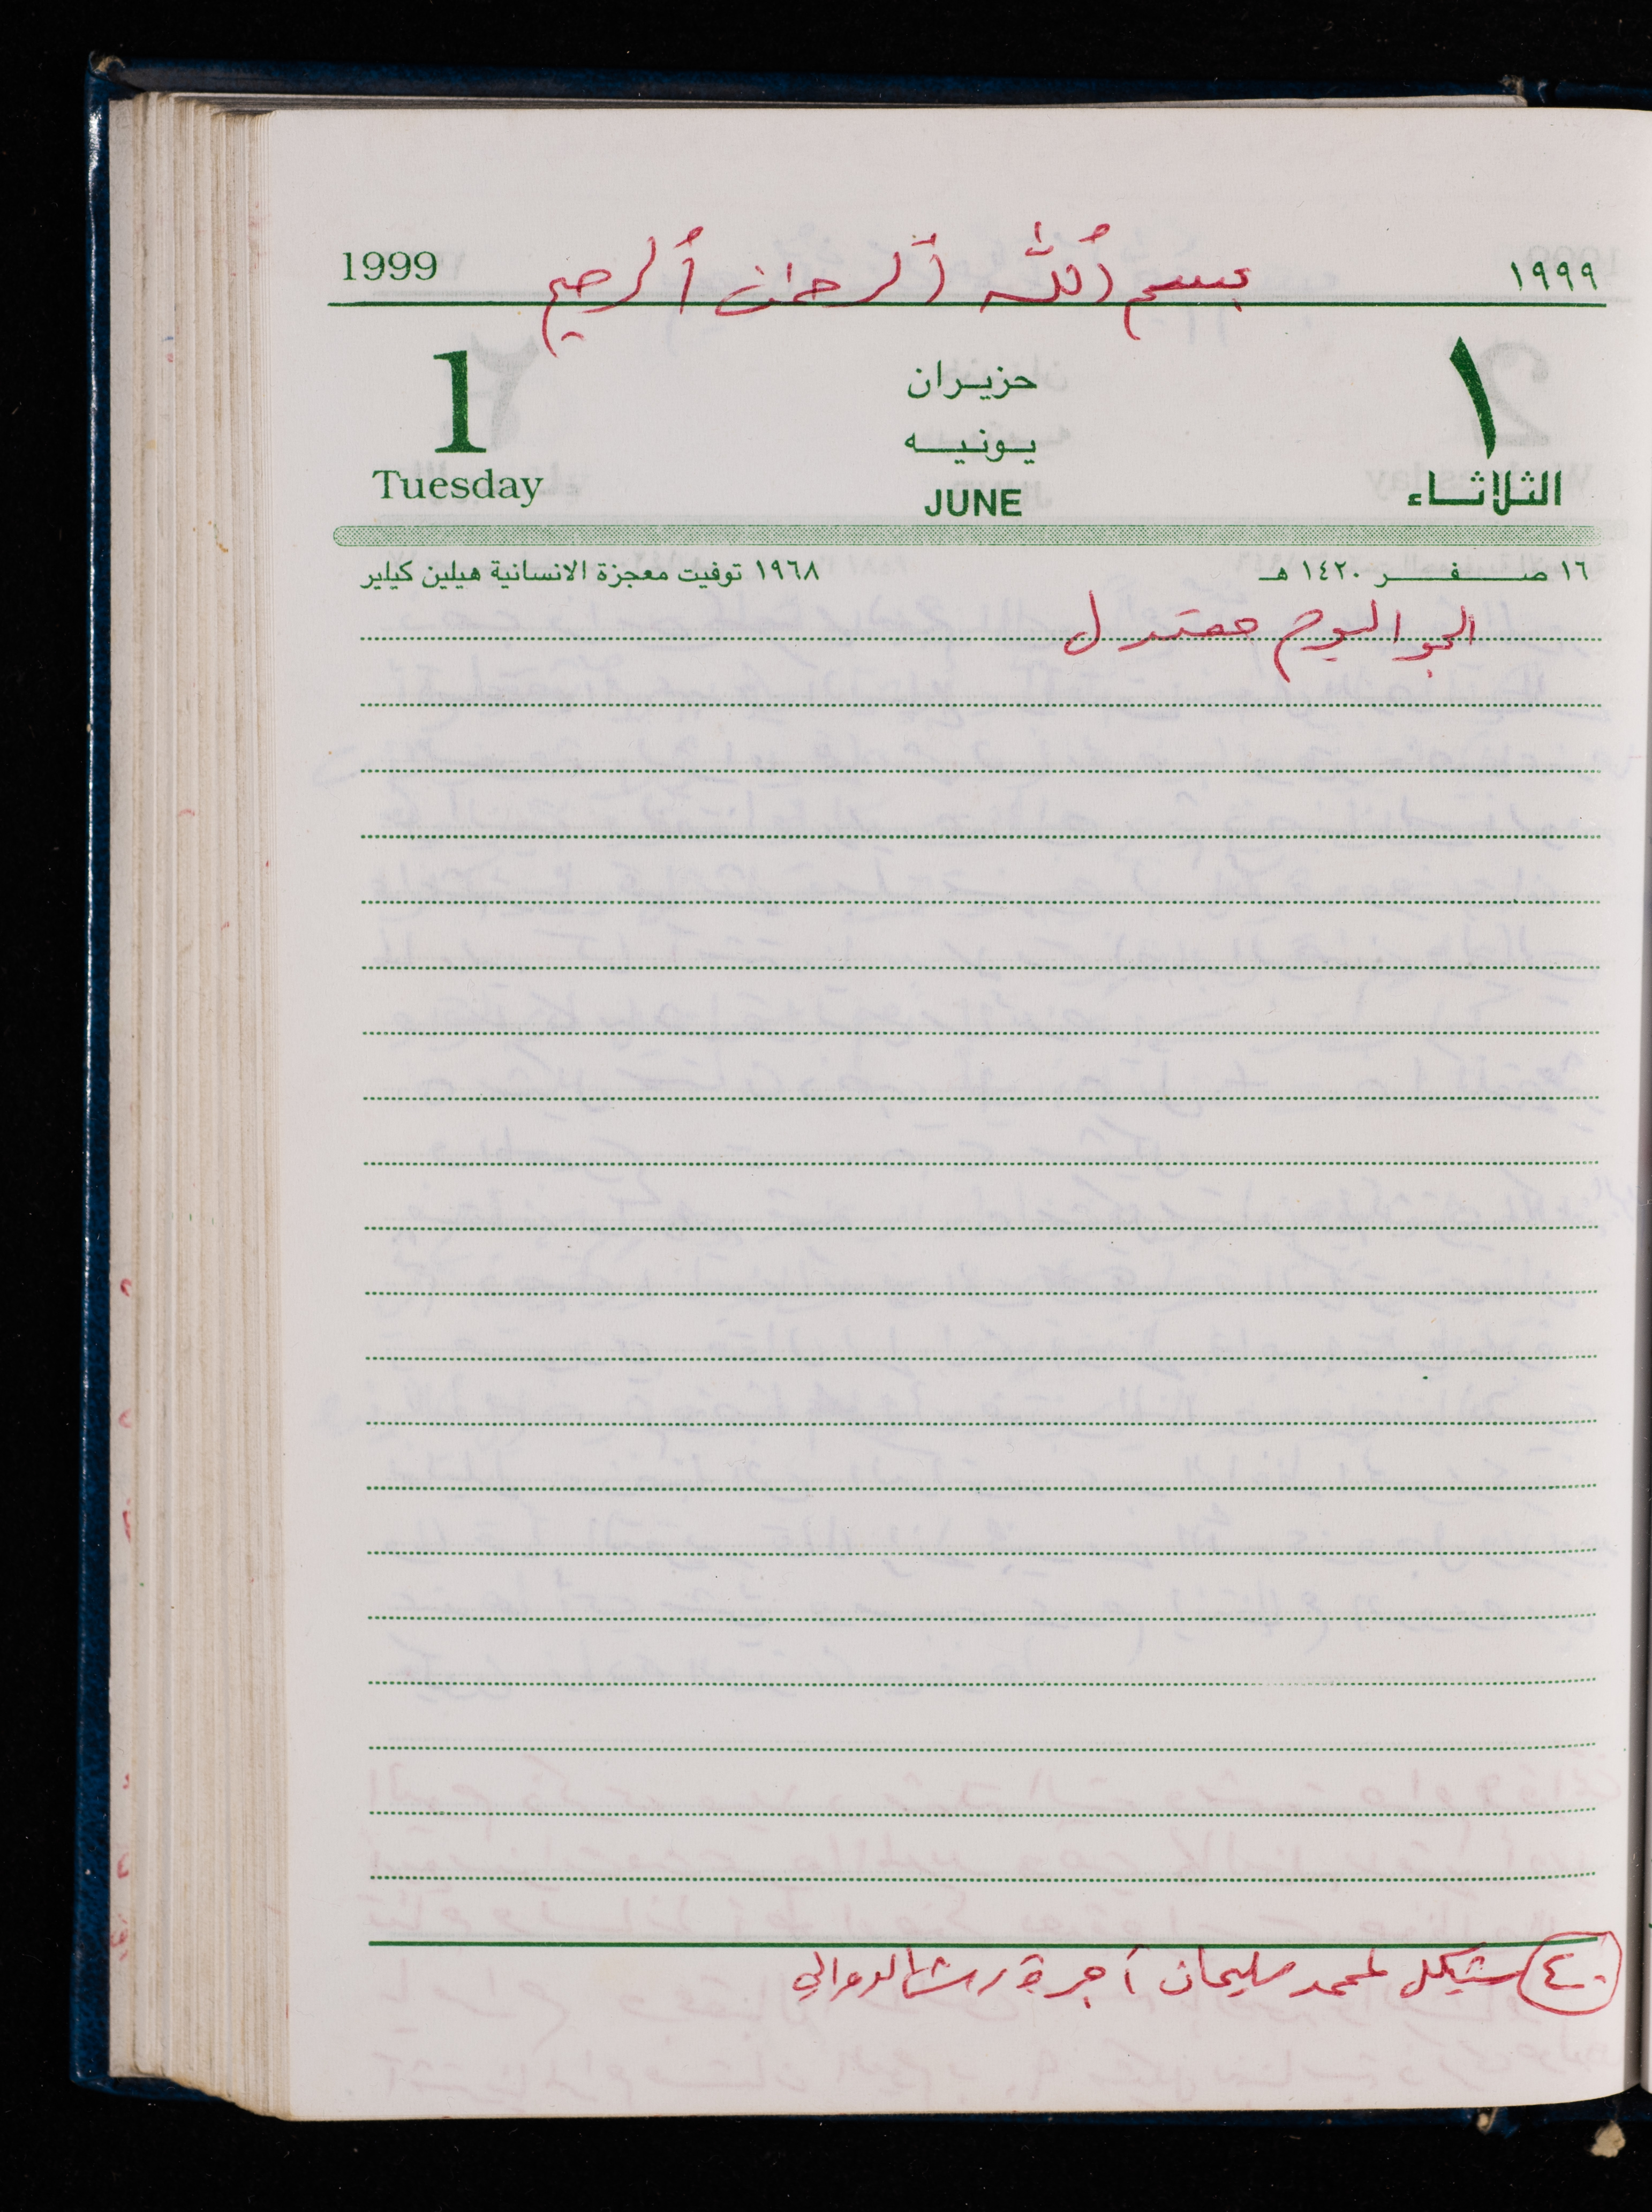 1999 بسم ٱللّٰه ٱلرحمان ٱلرحيم ١٩٩٩
1 حزيران ١
يونيه
Tuesday JUNE الثلاثاء
١٦ صفر ١٤٢٠ هـ ١٩٦٨ توفيت معجزة الانسانية هيلين كيلير
الجو اليوم معتدل
٤٠ شيكل لمحمد سليمان أجرة رش الدوالي